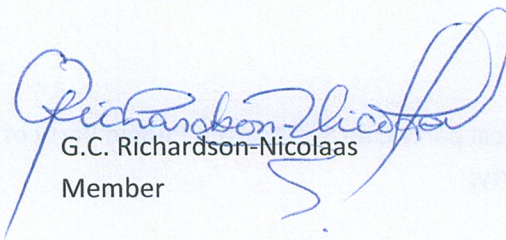 GRichardson-Nicolaas
G.C. Richardson-Nicolaas
Member